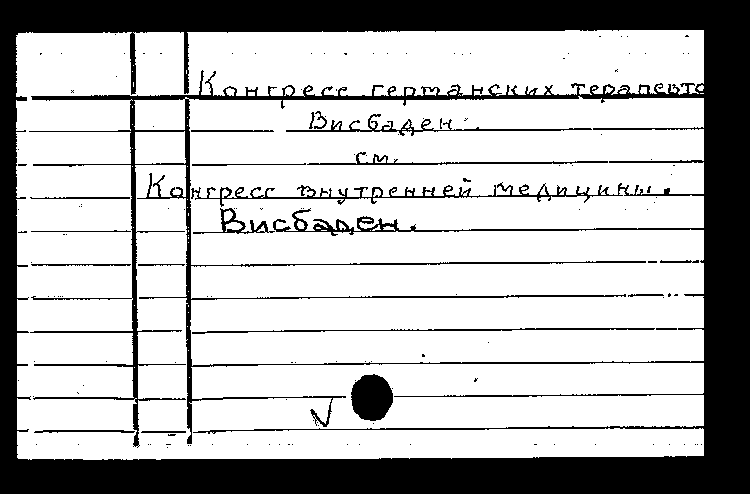 Конгресс германских терапевто
Висбаден.
см.
Конгресс внутренней медицины.
Висбаден.